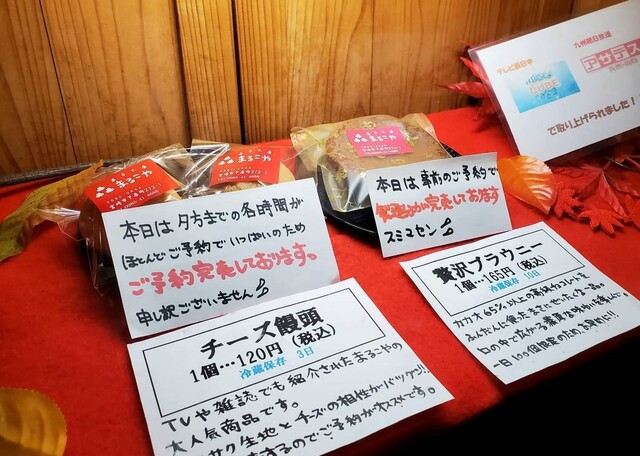 テレビ西日本
九州朝日放送
アサデス
で取り上げられました!
まるごや
まるごや
本日は夕方までの各時間が
ほとんどご予約でいっぱいのため
ご予約完売しております。
申し訳ございません
本日は事前のご予約で
完売しております
スミマセン
チーズ饅頭
1個…120円(税込)
冷蔵保存 3日
TVや雑誌でも紹介されたまるごやの
大人気商品です。
サク生地とチーズの相性がバッグン!!
するのでご予約がオススメです。
贅沢ブラウニー
1個…165円(税込)
冷蔵保存 10日
カカオ65%以上の高級チョコレートを
ふんだんに使ったまさにぜいたくな一品。
口の中で広がる濃厚な
一日100個限定のため、お早めに!!